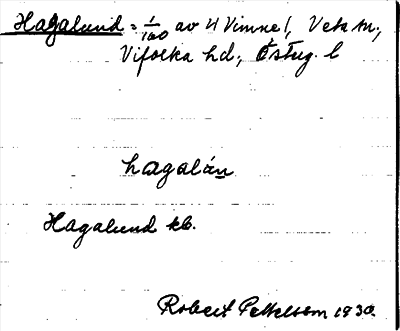 Hagalund = 1/160 av 4 Vimne l, Veta sn.,
Vifolka hd., Östug. l
hagalán
Hagalund kb.
Robert Pettelsom 1930.